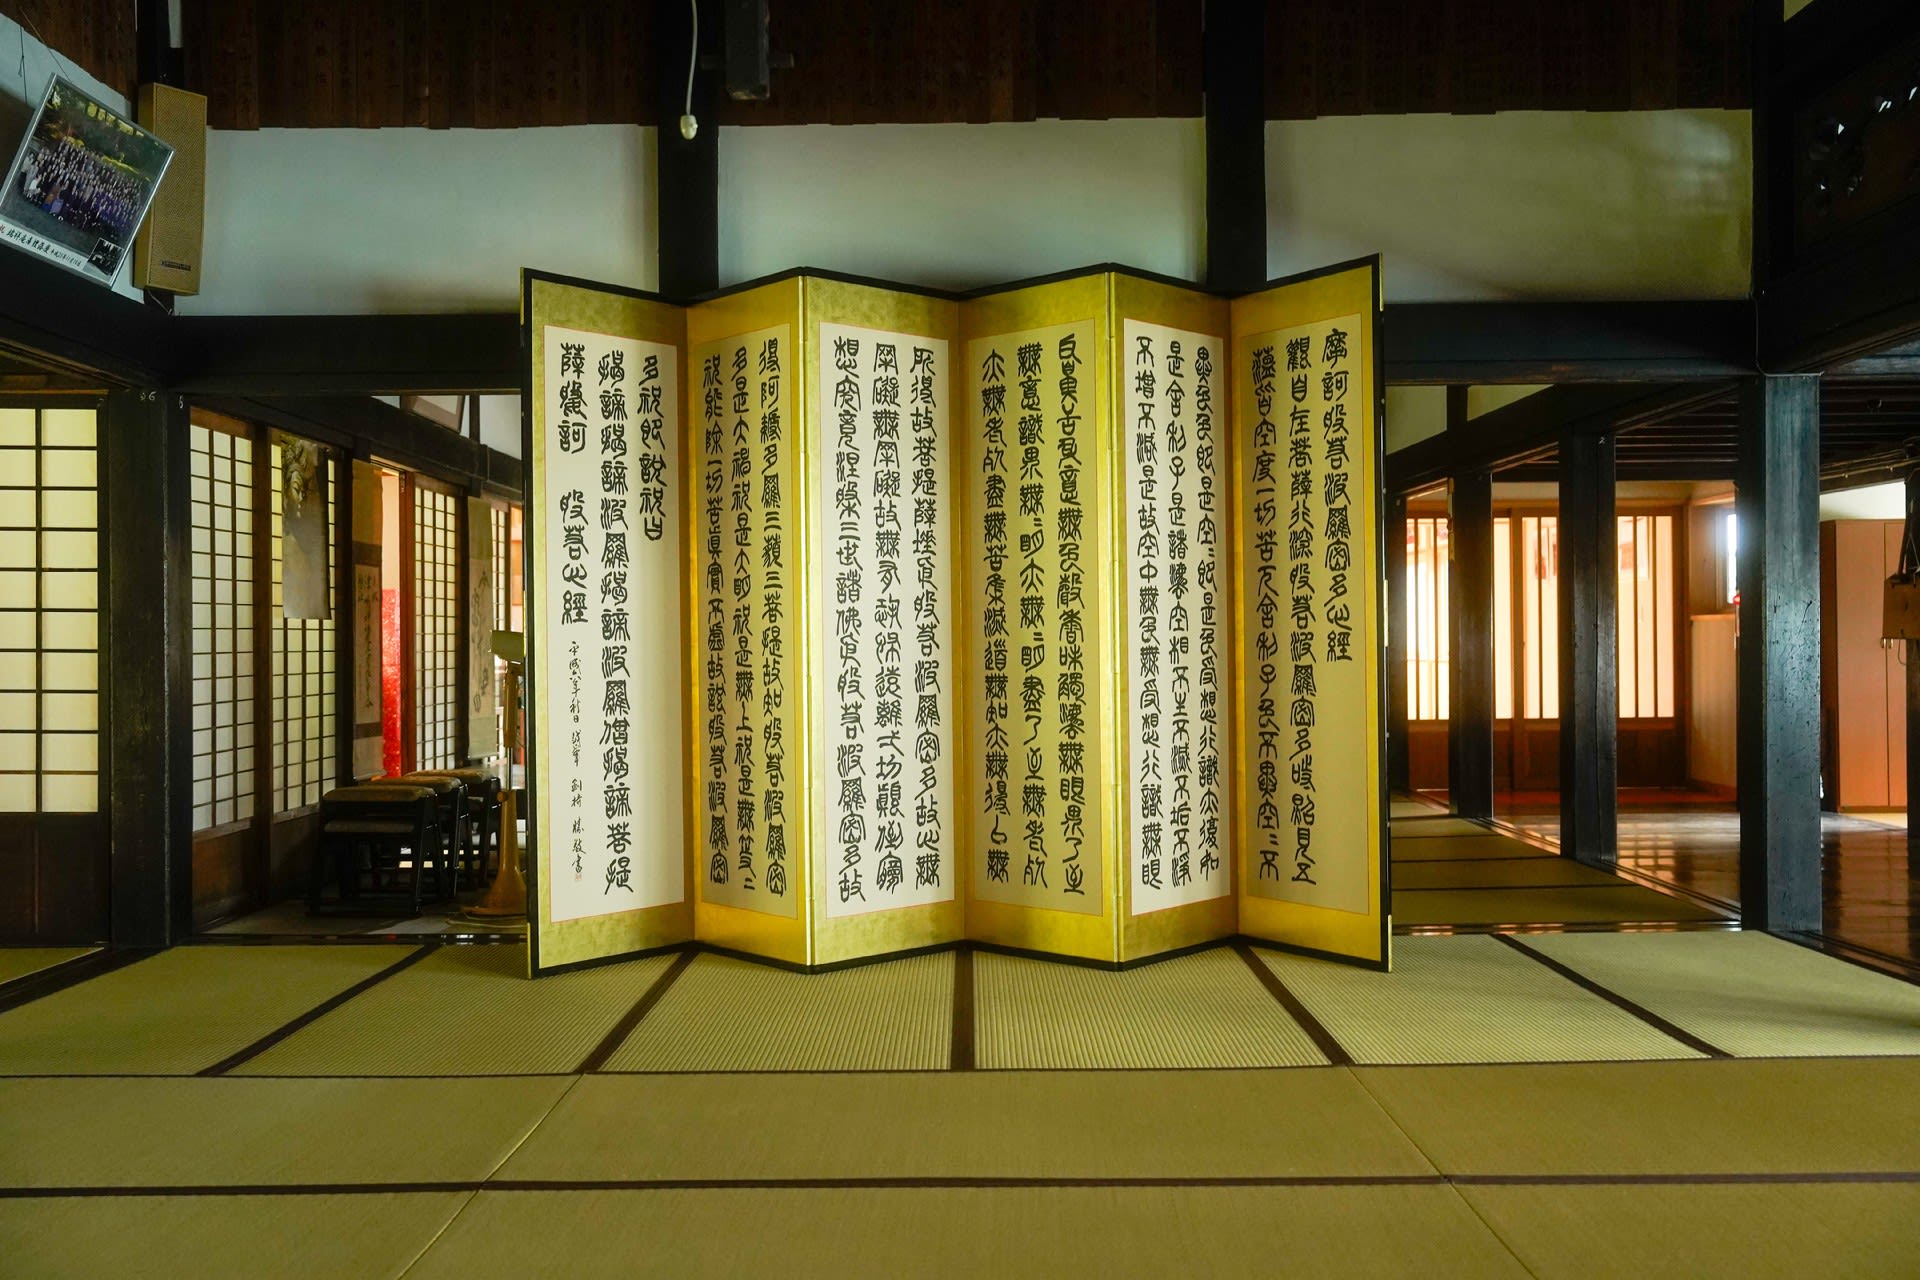 摩訶般若波羅密多心經
觀自在菩薩行深般若波羅密多時照見五
薀皆空度一切苦厄舍利子色不異空〻不
異色色即是空〻即是色受想行識亦復如
是舍利子是諸灋空相不生不滅不垢不淨
不增不減是故空中無色無受想行識無眼
耳鼻舌身意無色聲香味觸灋無眼界乃至
無意識界無〻明亦無〻明盡乃至無老死
亦無老死盡無苦集滅道無知亦無得以無
所得故菩提薩埵依般若波羅密多故心無
罣礙無罣礙故無有恐怖遠離一切顛倒夢
想究竟涅槃三世諸佛依般若波羅密多故
得阿耨多羅三藐三菩提故知般若波羅密
多是大神祝是大明祝是無上祝是無等〻
祝能除一切苦眞實不虛故說般若波羅密
多祝即說祝曰
揭諦揭諦波羅揭諦波羅僧揭諦菩提
薩婆訶 般若心經 平成八年秋日 書